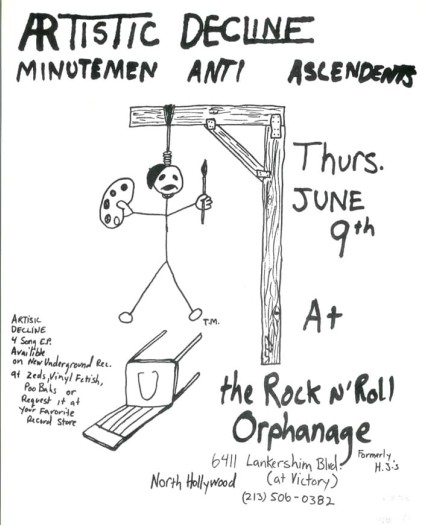 ARTISTIC DECLINE
MINUTEMEN ANTI ASCENDENTS
Thurs.
JUNE
9th
At
T.M.
ARTISIC
DECLINE
4 Song E.P.
Availible
on New Underground Rec.
at Zeds, Vinyl Fetish,
Poo Bahs or
Request it at
your Favorite
Record Store
the Rock N' Roll
Orphanage
Formerly
H.J.'s
6411 Lankershim Blvd.
North Hollywood (at Victory)
(213) 506-0382